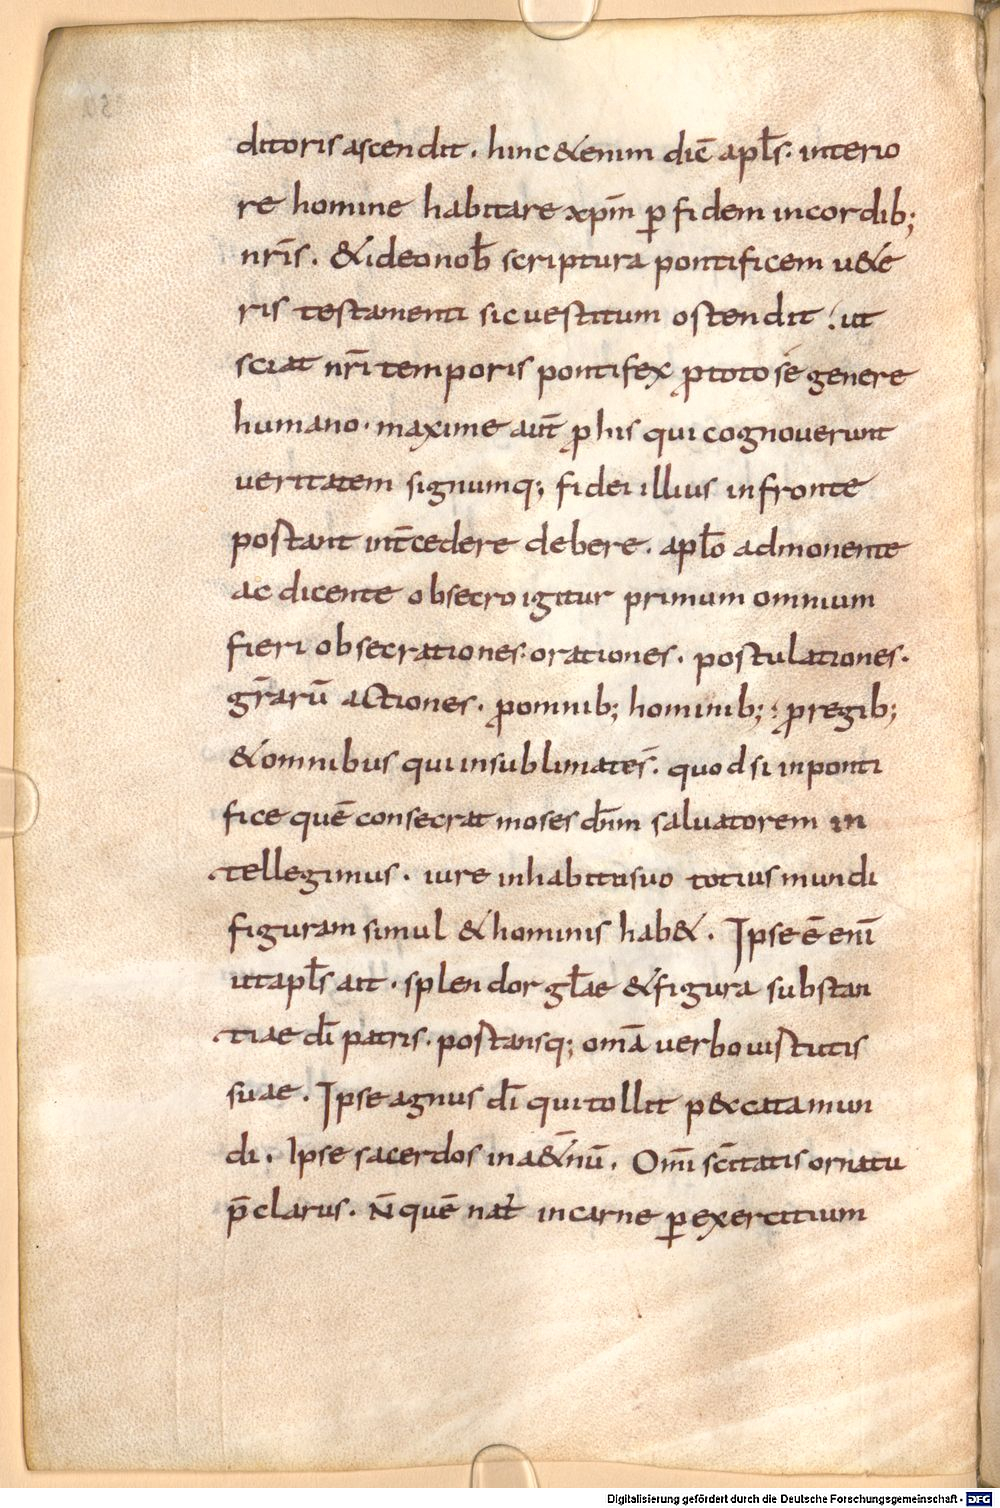 ditoris ascendit. hinc &enim dic̄ apl̄s. interio
re homine habitare xp̄m p̱ fidem incordib;
nr̄is. & ideo nob̄ scriptura pontificem u&e
ris testamenti sic uestitum ostendit. ut
sciat nr̄i temporis pontifex ꝓ toto se genere
humano. maxime aut̄ ꝓ his qui cognouerunt
ueritatem signumq; fidei illius in fronte
postant int̄cedere debere. apl̄o admonente
ac dicente obsecro igitur primum omnium
fieri obsecrationes. orationes. postulationes.
gr̄arū actiones. ꝓ omnib; hominib; ꝓ regib;
& omnibus qui in sublimate s̄. quod si in ponti
fice quē consecrat moses dn̄m saluatorem in
tellegimus. iure in habitu suo totius mundi
figuram simul & hominis hab&. Ipse ē eni̅
ut apl̄s ait. splendor gl̄ae & figura substan
tiae dī patris. postansq; om̄a uerbo uistutis
suae. Ipse agnus dī qui tollit peccata mun
di. Ipse sacerdos in a&̄nū. Om̄i sc̄itatis ornatu
p̄clarus. N̄ quē nat̄ in carne ꝑ exercitium
Digitalisierung gefördert durch die Deutsche Forschungsgemeinschaft - DFG